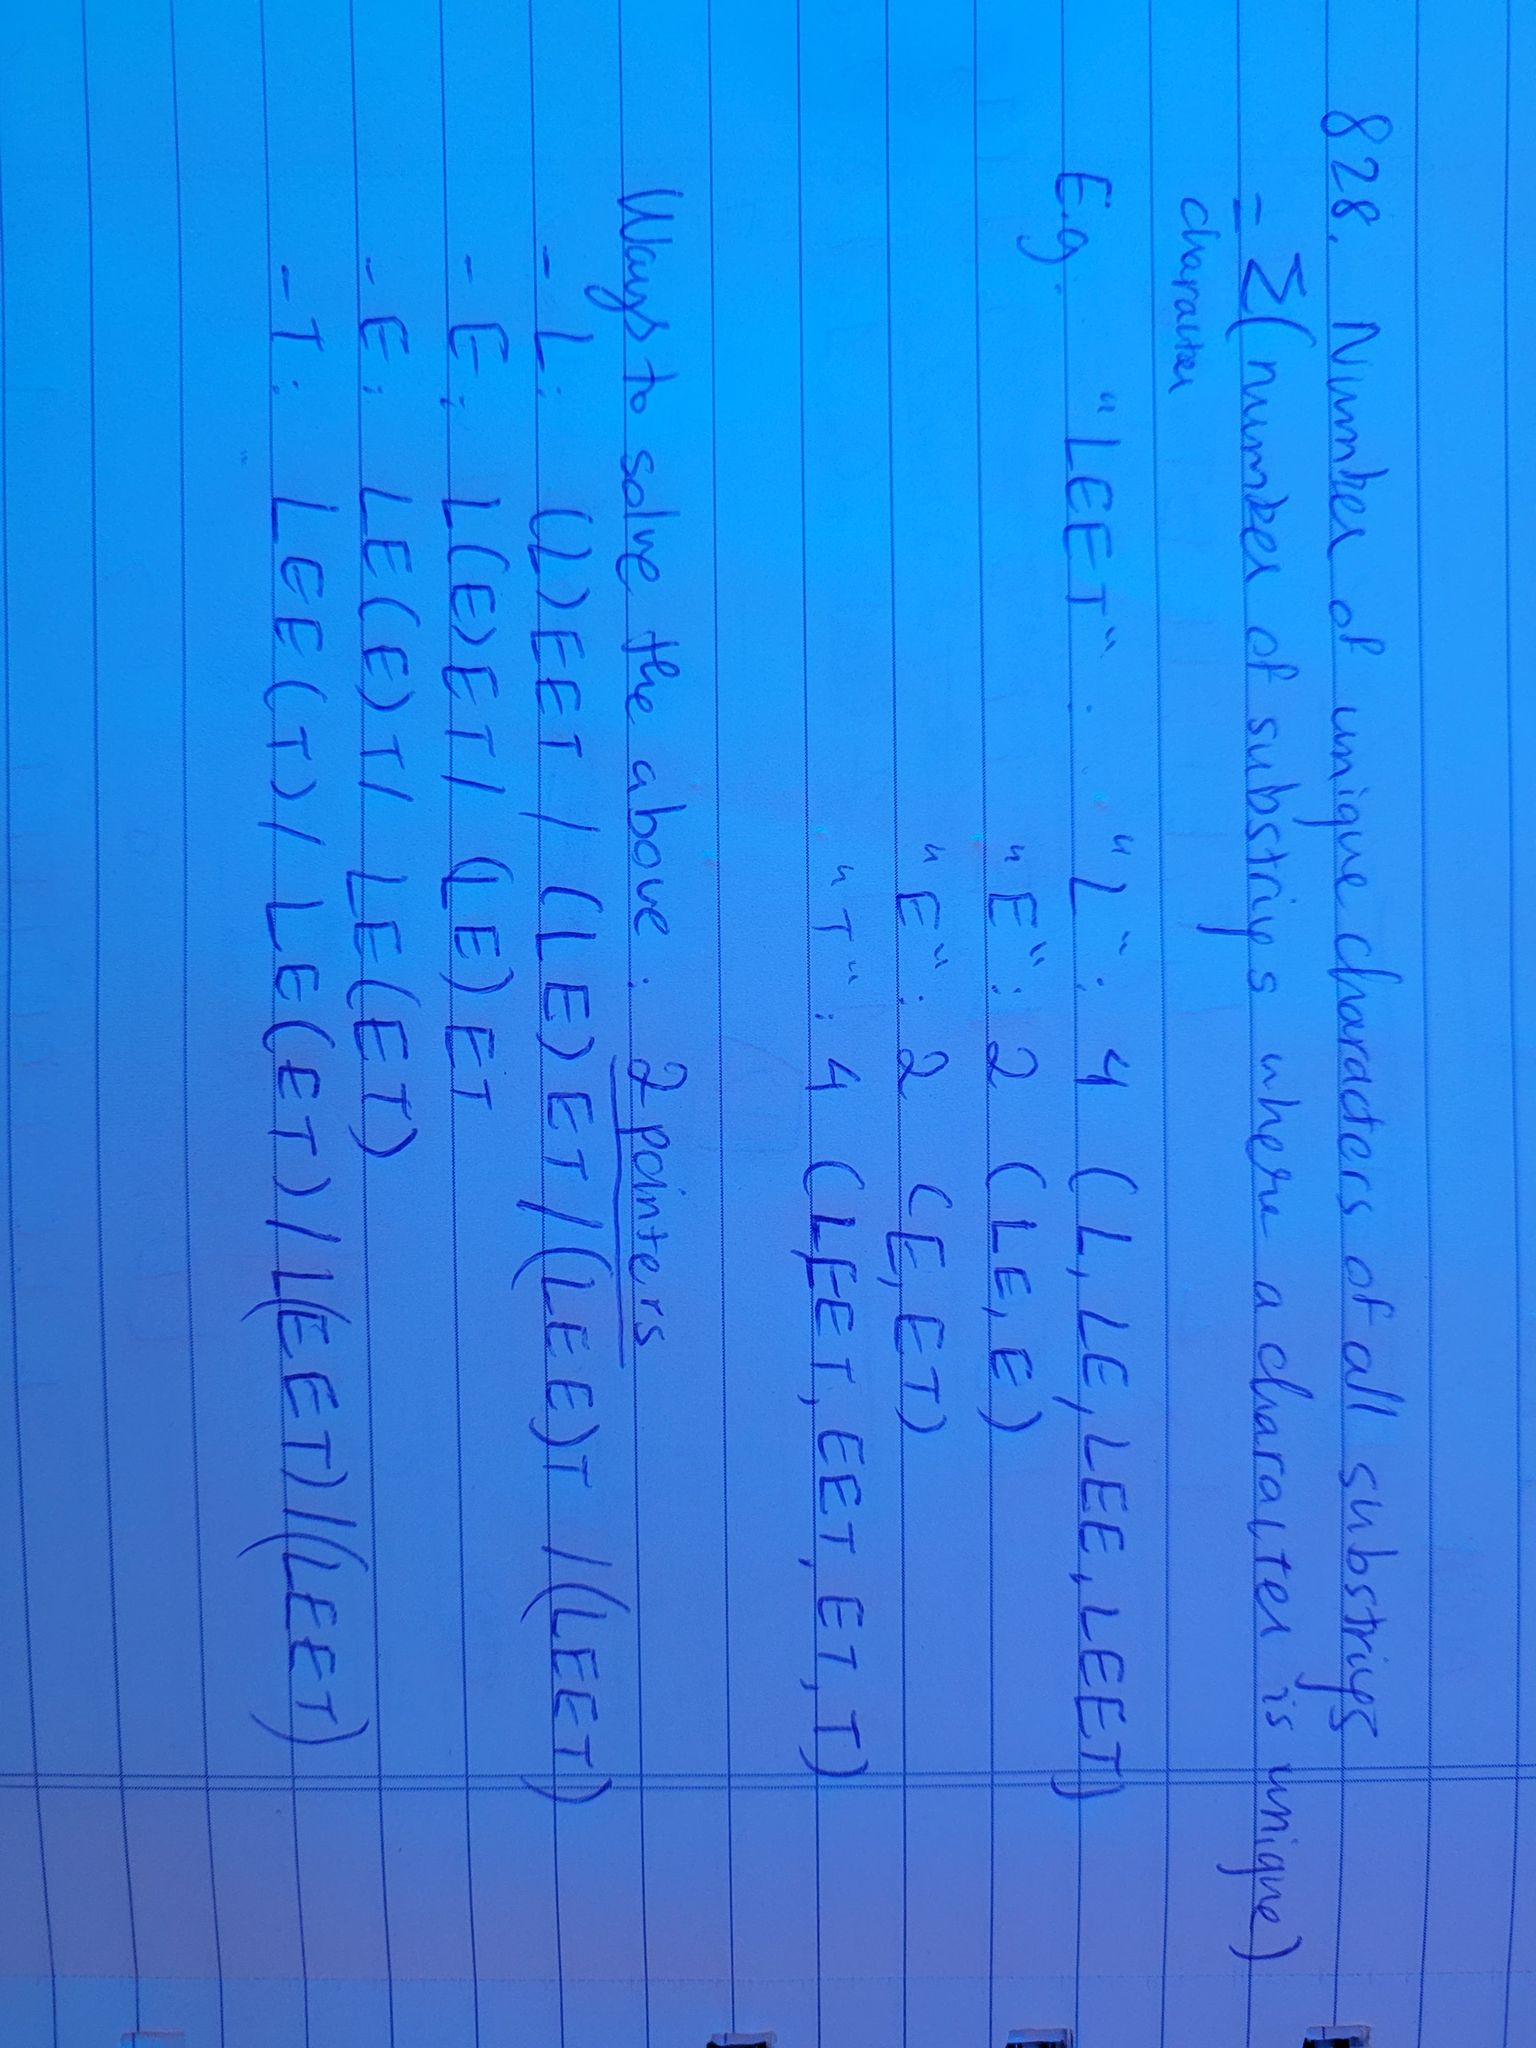 828. Number of unique characters of all substrings
= Σ(number of substrings where a character is unique)
character
E.g. "LEET": "L": 4 (L, LE, LEE, LEET)
"E": 2 (LE, E)
"E": 2 (E, ET)
"T": 4 (LEET, EET, ET, T)
Ways to solve the above: 2 pointers
- L: (L)EET / (LE)ET / (LEE)T / (LEET)
- E: L(E)ET / (LE)ET
- E: LE(E)T / LE(ET)
- T: LEE(T) / LE(ET) / L(EET) / (LEET)